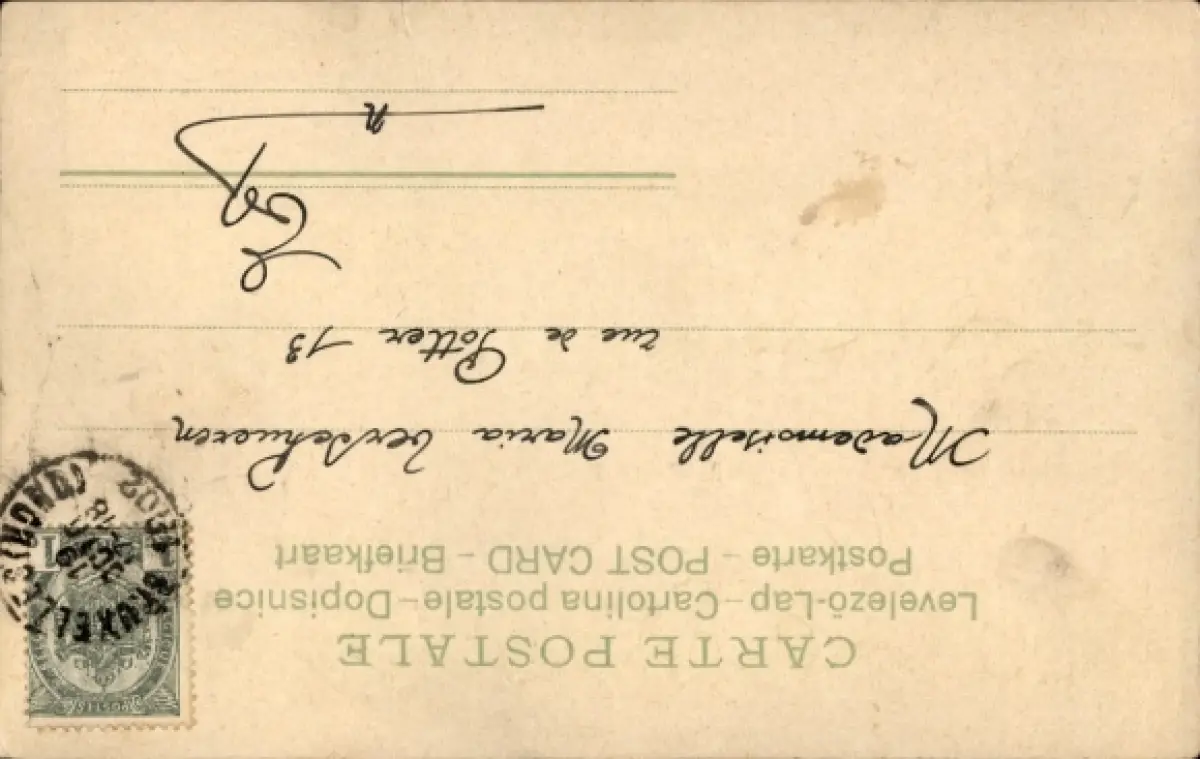 CARTE POSTALE
Levelező-Lap - Cartolina postale - Dopisnice
Postkarte - POST CARD - Briefkaart
Mademoiselle Maria
rue de Potter 13
E/V
n
1
1
BRUXELLES
1902